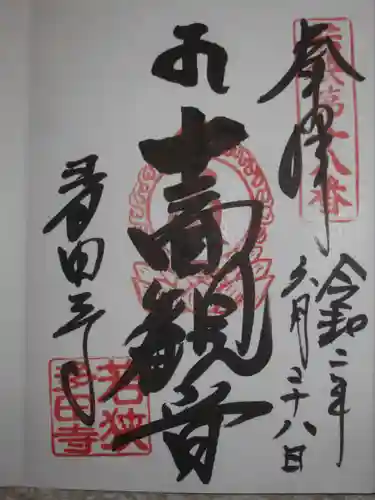 奉拝
若狭第十八番
令和二年
六月二十八日
十一面観音
多田寺
若狭
多田寺